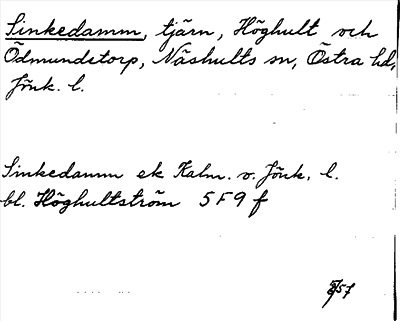 Sinkedamm, tjärn, Höghult och
Ödmundetorp, Näshults sn, Östra hd,
Jönk. l.
Sinkedamm ek Kalm. o. Jönk. l.
bl. Höghultström 5F9f